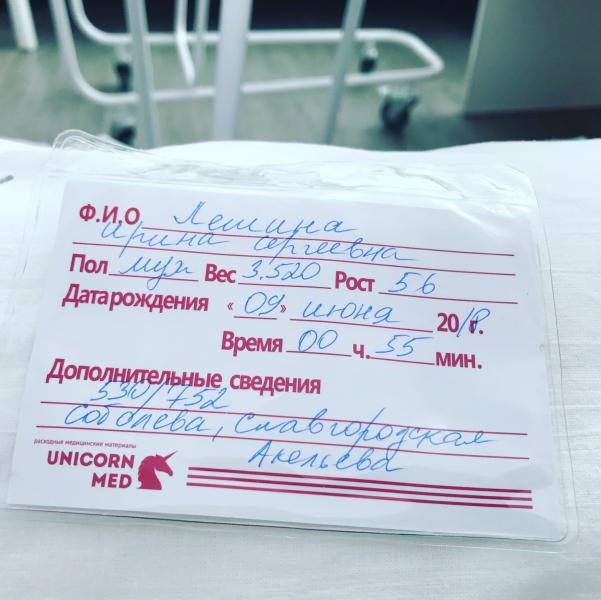 Ф.И.О Лешина
Ирина Сергеевна
Пол муж Вес 3.520 Рост 56
Дата рождения «09» июня 2018г.
Время 00 ч. 55 мин.
Дополнительные сведения
530/752
Соболева, Славгородская
Акельева
расходные медицинские материалы
UNICORN
MED